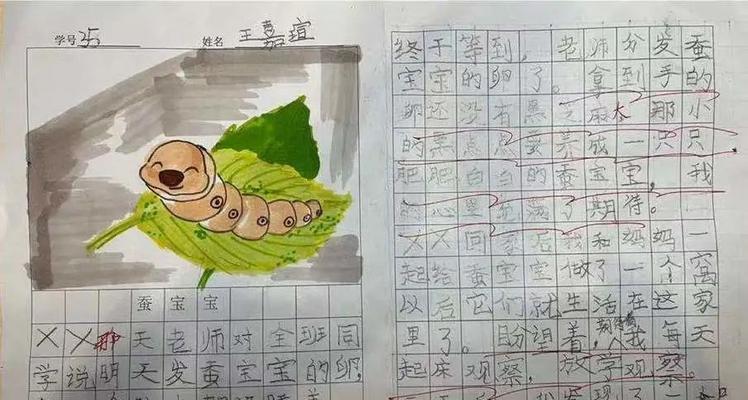 学号 25 姓名 王嘉瑄
蚕宝宝
XX那天老师对全班同
学说明天发蚕宝宝的卵,
终于等到,老师分发蚕
宝宝的卵了。拿到手的
卵还没有黑芝麻大那小
的黑点点要养成一只只
肥肥白白的蚕宝宝,我
的心里充满了期待。
XX回家后我和妈妈一
起给蚕宝宝做了一个窝
以后它们就生活在这家
里了。盼望着,我每天
起床观察,放学观察。
发现了